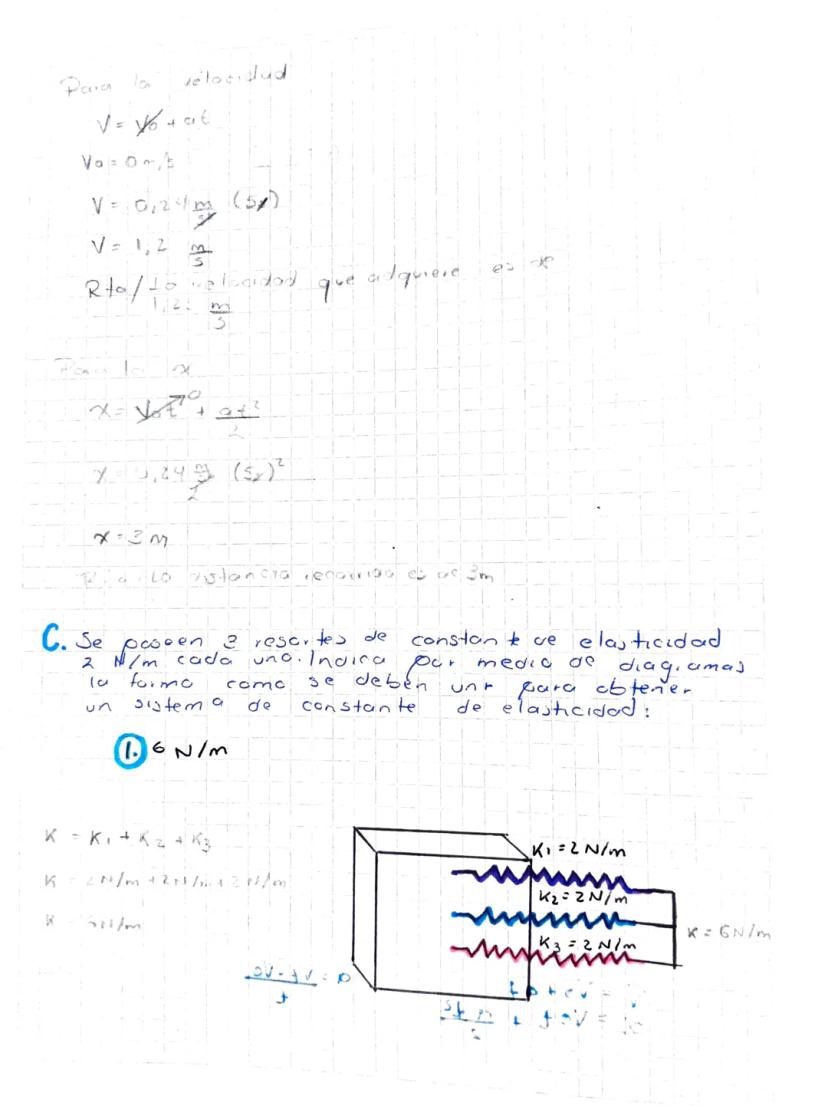 Para la velocidad
V = Vo + at
Vo = 0 m/s
V = 0,24 m/s² (5s)
V = 1,2 m/s
Rta/ La velocidad que adquiere es de
1,2 m/s
Para la x
x = Vot⁰ + at²/2
x = 0,24 m/s² (5s)²/2
x = 3 m
Rta/ La distancia recorrida es de 3m
C. Se poseen 3 resortes de constante de elasticidad
2 N/m cada uno. Indica por medio de diagramas
la forma como se deben unir para obtener
un sistema de constante de elasticidad:
1. 6 N/m
K = K1 + K2 + K3
K = 2N/m + 2N/m + 2N/m
K = 6N/m
K1 = 2 N/m
K2 = 2N/m
K3 = 2N/m
K = 6N/m